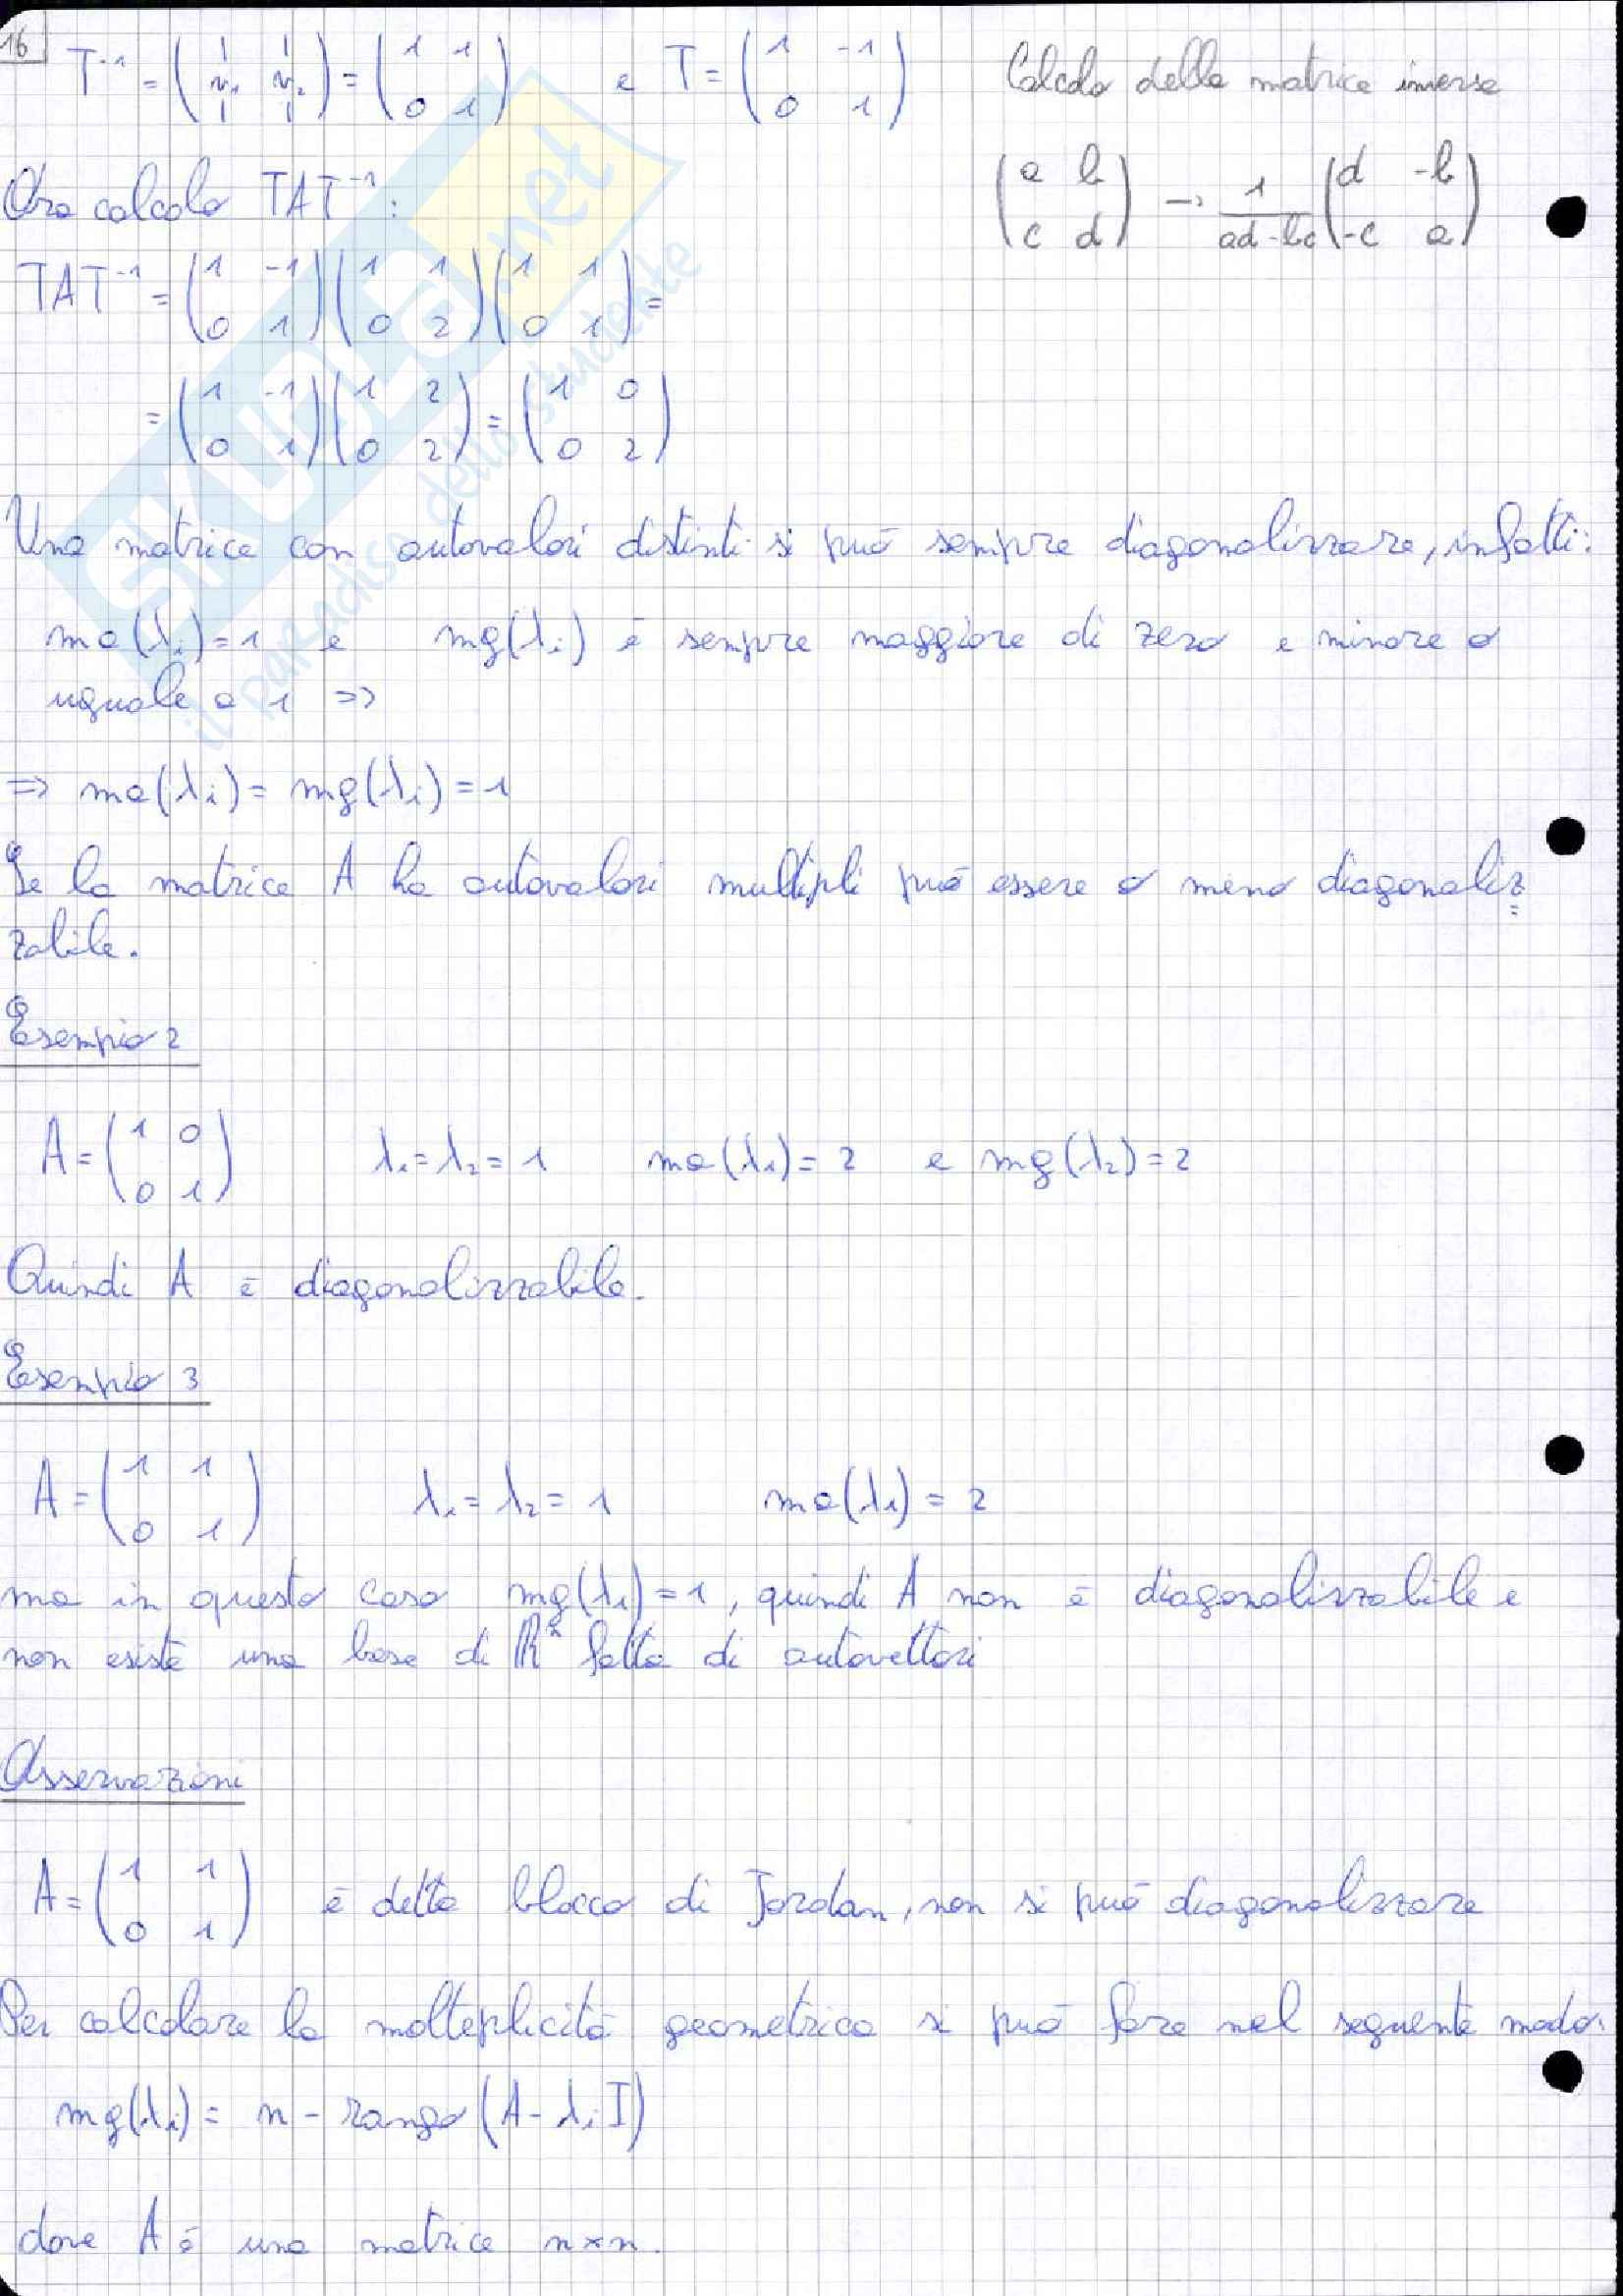 16
T⁻¹ = ( | | v₁ v₂ | | ) = ( 1 1 0 1 ) e T = ( 1 -1 0 1 ) Calcolo della matrice inversa
( a b c d ) → 1/(ad-bc) ( d -b -c a )
Ora calcolo TAT⁻¹:
TAT⁻¹ = ( 1 -1 0 1 )( 1 1 0 2 )( 1 1 0 1 ) =
= ( 1 -1 0 1 )( 1 2 0 2 ) = ( 1 0 0 2 )
Una matrice con autovalori distinti si può sempre diagonalizzare, infatti:
ma(λᵢ)=1 e mg(λᵢ) è sempre maggiore di zero e minore o
uguale a 1 =>
=> ma(λᵢ) = mg(λᵢ) = 1
Se la matrice A ha autovalori multipli può essere o meno diagonaliz=
zabile.
Esempio 2
A = ( 1 0 0 1 ) λ₁ = λ₂ = 1 ma(λ₁) = 2 e mg(λ₂) = 2
Quindi A è diagonalizzabile.
Esempio 3
A = ( 1 1 0 1 ) λ₁ = λ₂ = 1 ma(λ₁) = 2
ma in questo caso mg(λ₁)=1, quindi A non è diagonalizzabile e
non esiste una base di ℝ² fatta di autovettori
Osservazioni
A = ( 1 1 0 1 ) è detta blocco di Jordan, non si può diagonalizzare
Per calcolare la molteplicità geometrica si può fare nel seguente modo:
mg(λᵢ) = n - rango (A - λᵢ I)
dove A è una matrice n×n.
SKUOLA.net
il paradiso dello studente